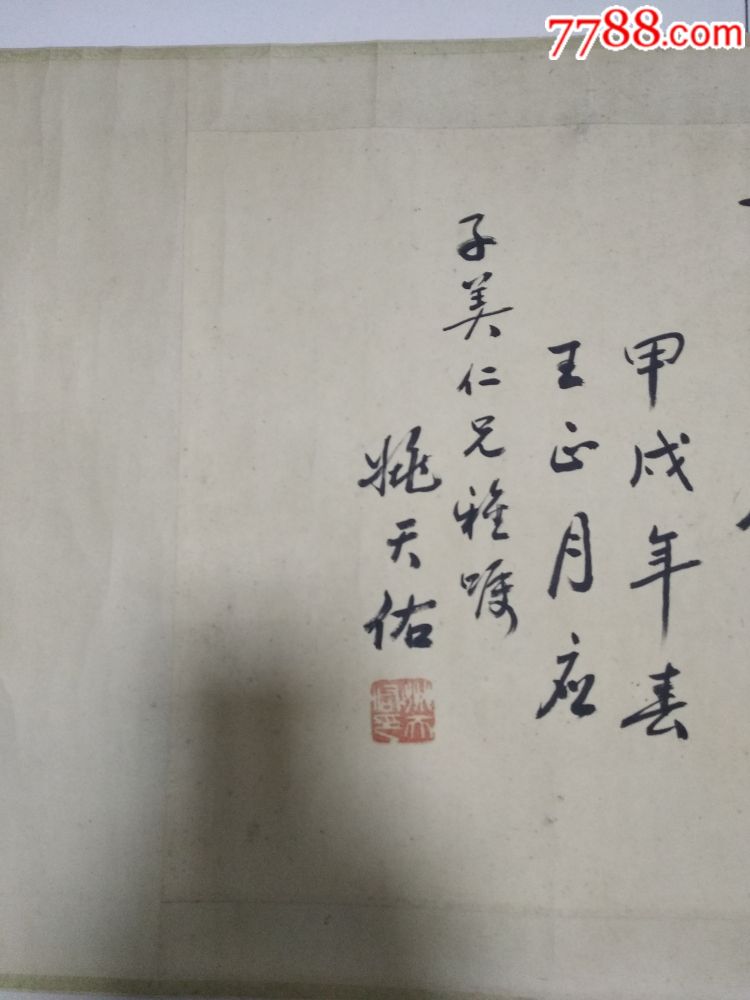 7788.com
甲戌年春
王正月应
子美仁兄雅嘱
姚天佑